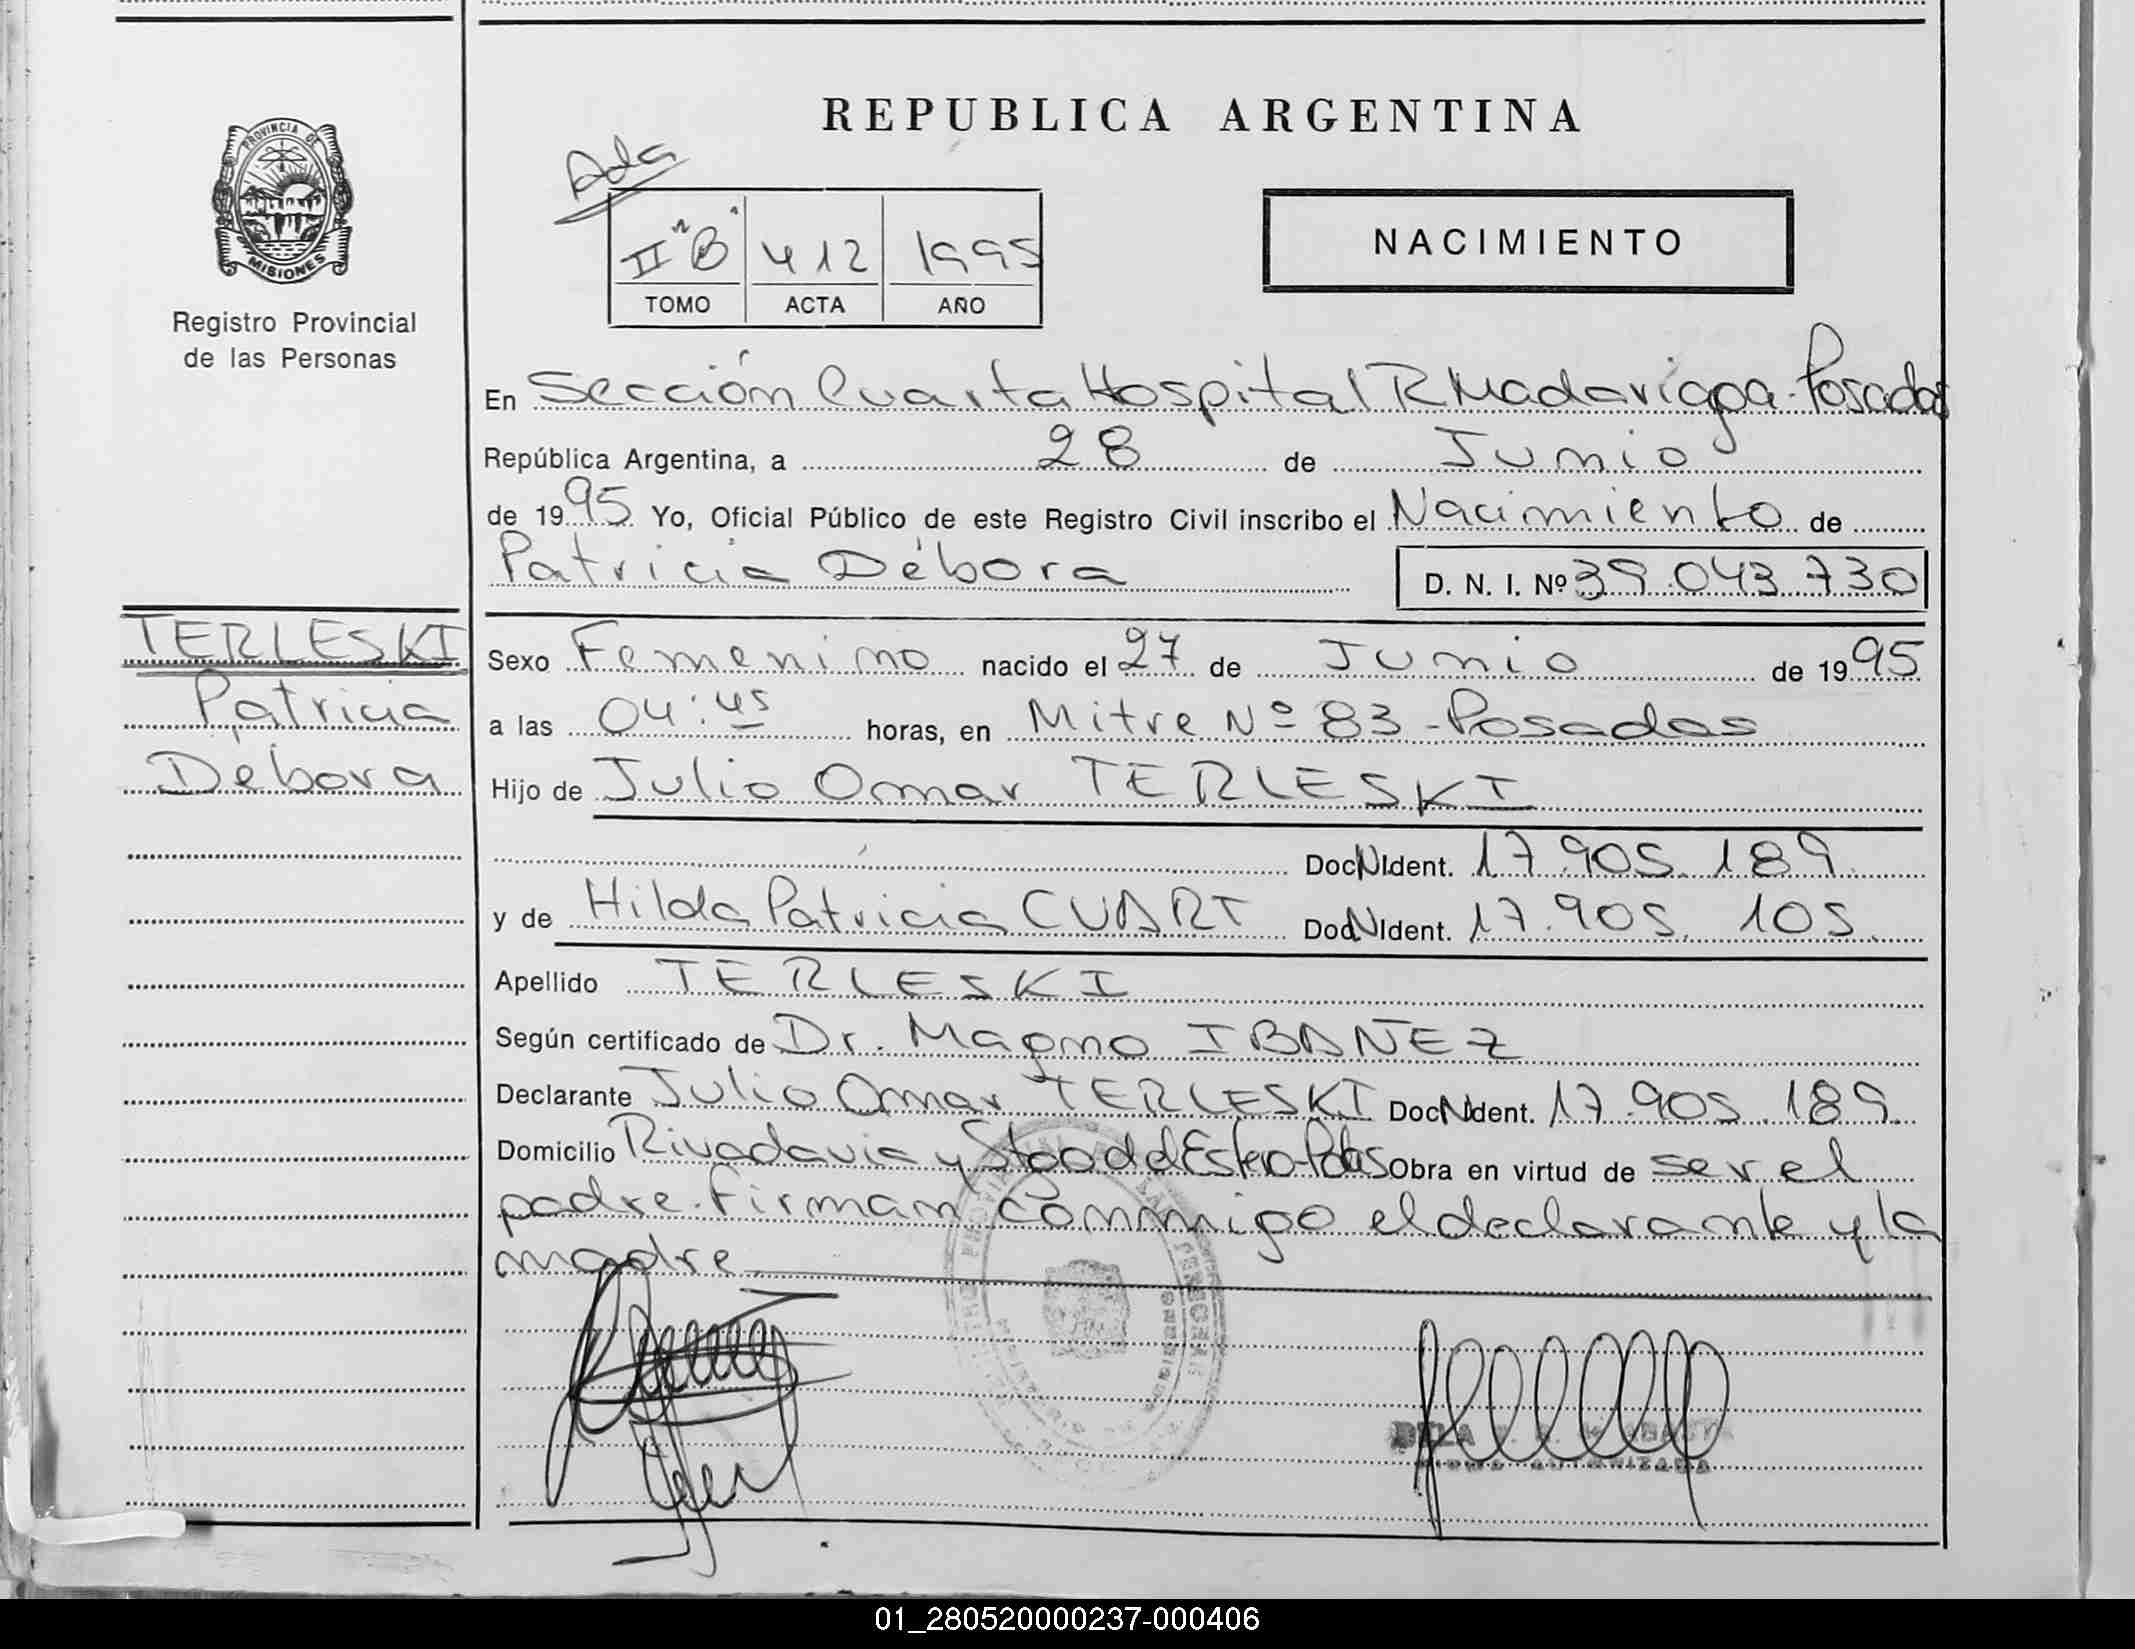 REPUBLICA ARGENTINA
Ada
PROVINCIA DE
MISIONES
Registro Provincial
de las Personas
II "B" 412 1995
TOMO ACTA AÑO
NACIMIENTO
En Sección Cuarta Hospital R Madariaga - Posadas
República Argentina, a 28 de Junio
de 1995 Yo, Oficial Público de este Registro Civil inscribo el Nacimiento de
Patricia Débora D. N. I. Nº 39.043.730
TERLESKI
Patricia
Débora
Sexo Femenino nacido el 27 de Junio de 1995
a las 04:45 horas, en Mitre Nº 83 - Posadas
Hijo de Julio Omar TERLESKI
Doc N Ident. 17.905.189
y de Hilda Patricia CUART Doc N Ident. 17.905.105
Apellido TERLESKI
Según certificado de Dr. Magno IBAÑEZ
Declarante Julio Omar TERLESKI Doc N Ident. 17.905.189
Domicilio Rivadavia y Stgo del Estero - Pdas Obra en virtud de ser el
padre. Firman conmigo el declarante y la
madre
01_280520000237-000406